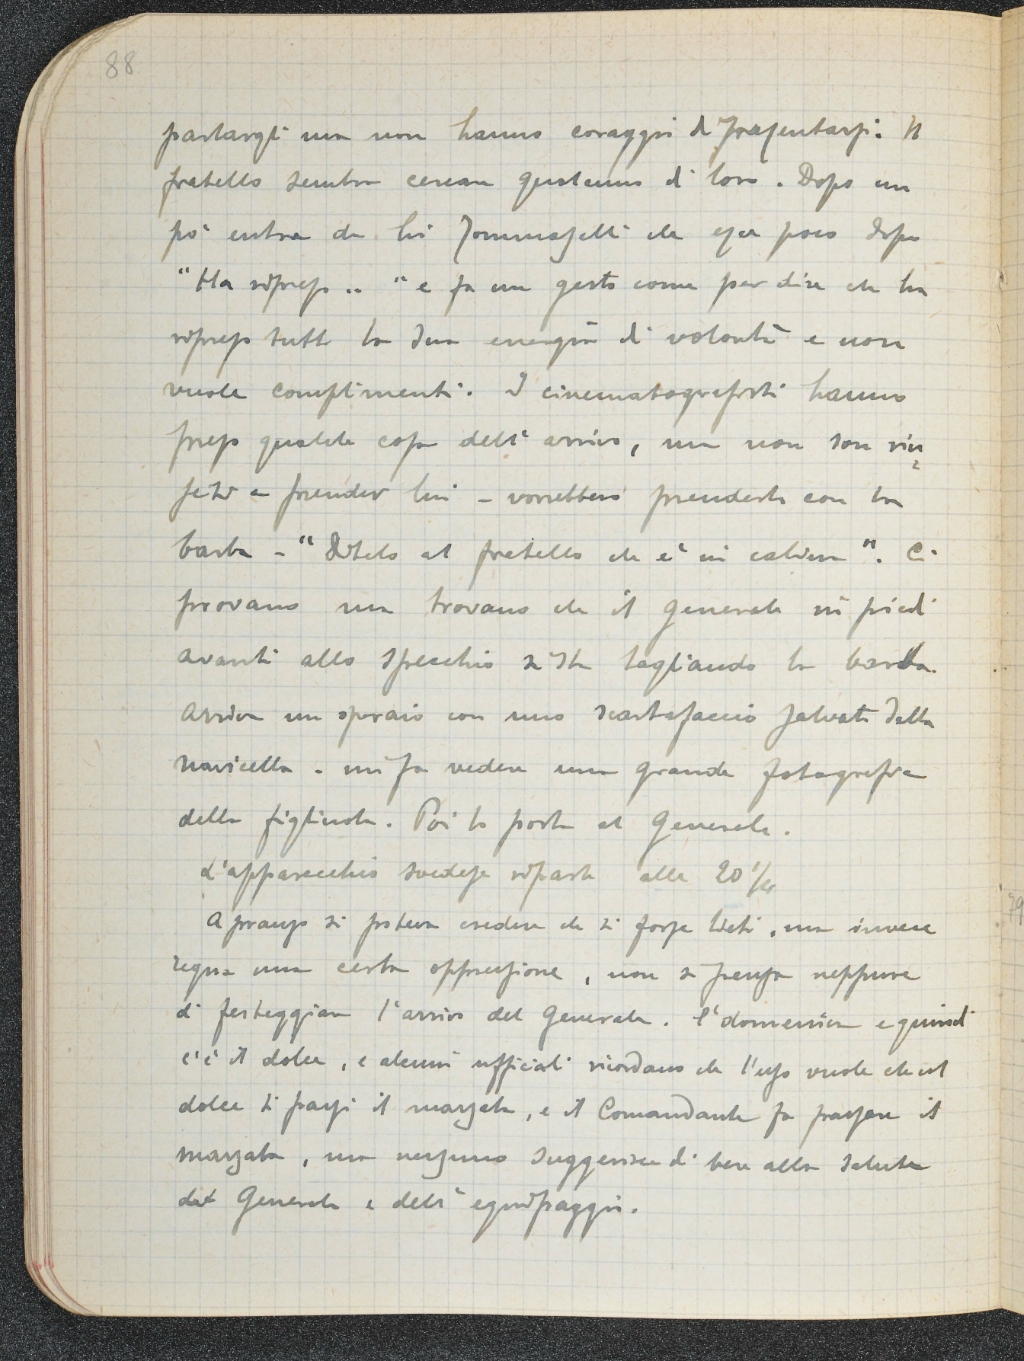 88
parlargli ma non hanno coraggio di presentarsi. Il
fratello sembra cercare qualcuno di loro. Dopo un
po' entra da lui Tommaselli che esce poco dopo
"Ha ripreso .. " e fa un gesto come per dire che ha
ripreso tutta la sua energia di volontà e non
vuole complimenti. I cinematografisti hanno
preso qualche cosa dell'arrivo, ma non son riu
sciti a prender lui - vorrebbero prenderlo con la
barba - "Ditelo al fratello che è in cabina". Ci
provano ma trovano che il Generale in piedi
avanti allo specchio si sta tagliando la barba.
Arriva un operaio con uno scartafaccio salvato dalla
navicella - mi fa vedere una grande fotografia
della figliuola. Poi lo porta al Generale.
L'apparecchio svedese riparte alle 20
A pranzo si poteva credere che si fosse lieti, ma invece
regna una certa oppressione, non si pensa neppure
di festeggiare l'arrivo del Generale. È domenica e quindi
c'è il dolce, e alcuni ufficiali ricordano che l'uso vuole che col
dolce si passi il marsala, e il Comandante fa passare il
marsala, ma nessuno suggerisce di bere alla salute
del Generale e dell'equipaggio.